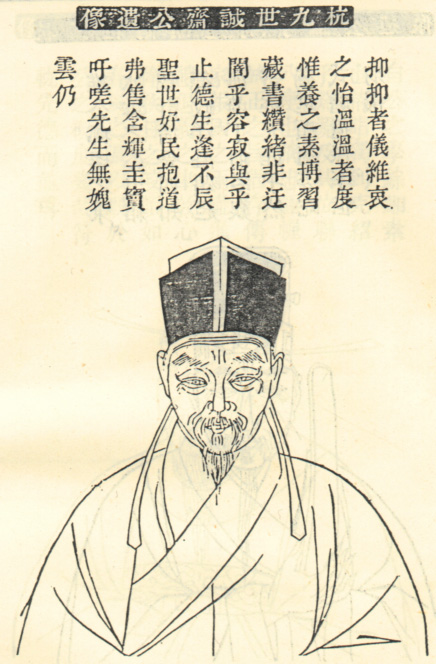 杭九世誠齋公遺像
抑抑者儀維哀
之怡溫溫者度
惟養之素博習
藏書纘緒非迂
闇乎容寂與乎
止德生逢不辰
聖世好民抱道
弗售含輝圭竇
吁嗟先生無媿
雲仍